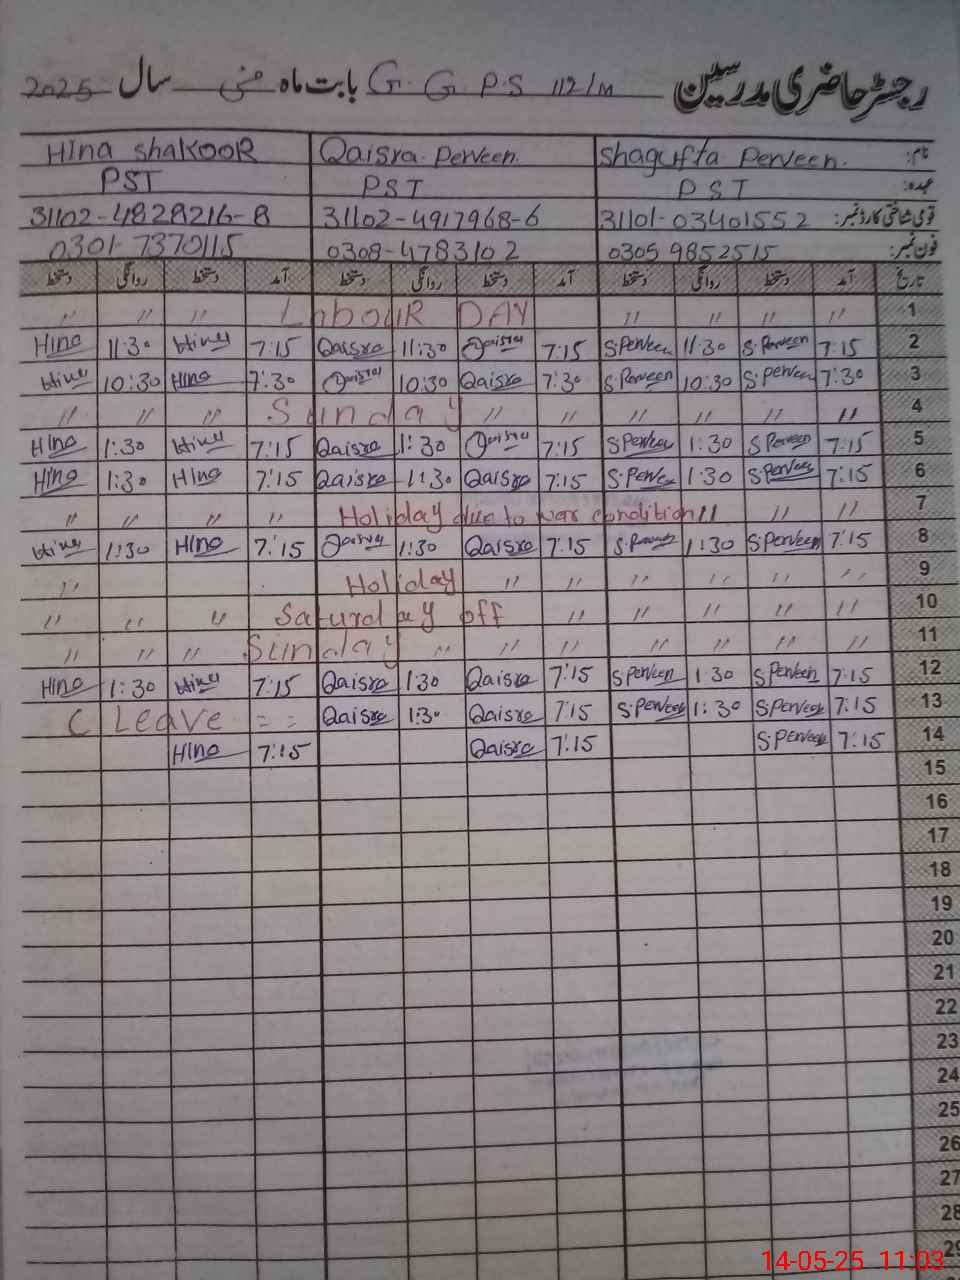 رجسٹر حاضری مدرسین G.G P.S 112/M بابت ماہ مئی سال 2025
نام: Shagufta Perveen. Qaisra Perveen. Hina Shakoor
عہدہ: PST PST PST
قومی شناختی کارڈ نمبر: 31101-03401552 31102-4917968-6 31102-4828216-8
فون نمبر: 0305 9852515 0308-4783102 0301-7370115
تاریخ آمد دستخط روانگی دستخط آمد دستخط روانگی دستخط آمد دستخط روانگی دستخط
〃 〃 〃 Labour DAY 〃 〃 〃 〃 1
Hina 11:30 Hina 7:15 Qaisra 11:30 Qaisra 7:15 S.Perveen 11:30 S.Perveen 7:15 2
Hina 10:30 Hina 7:30 Qaisra 10:30 Qaisra 7:30 S.Perveen 10:30 S.Perveen 7:30 3
〃 〃 〃 Sunday 〃 〃 〃 〃 〃 〃 4
Hina 1:30 Hina 7:15 Qaisra 1:30 Qaisra 7:15 S.Perveen 1:30 S.Perveen 7:15 5
Hina 1:30 Hina 7:15 Qaisra 1:30 Qaisra 7:15 S.Perveen 1:30 S.Perveen 7:15 6
〃 〃 〃 〃 Holiday due to war condition 〃 〃 〃 7
Hina 1:30 Hina 7:15 Qaisra 1:30 Qaisra 7:15 S.Perveen 1:30 S.Perveen 7:15 8
〃 Holiday 〃 〃 〃 〃 〃 〃 9
〃 〃 〃 Saturday off 〃 〃 〃 〃 〃 10
〃 〃 〃 Sunday 〃 〃 〃 〃 〃 〃 〃 11
Hina 1:30 Hina 7:15 Qaisra 1:30 Qaisra 7:15 S.Perveen 1:30 S.Perveen 7:15 12
C Leave = = Qaisra 1:30 Qaisra 7:15 S.Perveen 1:30 S.Perveen 7:15 13
Hina 7:15 Qaisra 7:15 S.Perveen 7:15 14
15
16
17
18
19
20
21
22
23
24
25
26
27
28
29
14-05-25 11:03